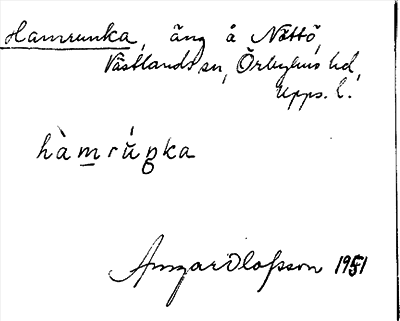 Hamrunka, äng å Nöttö,
Västlands sn, Örbyhus hd,
Upps. l.
hàmrúŋka
Ansgar Olofsson 1951